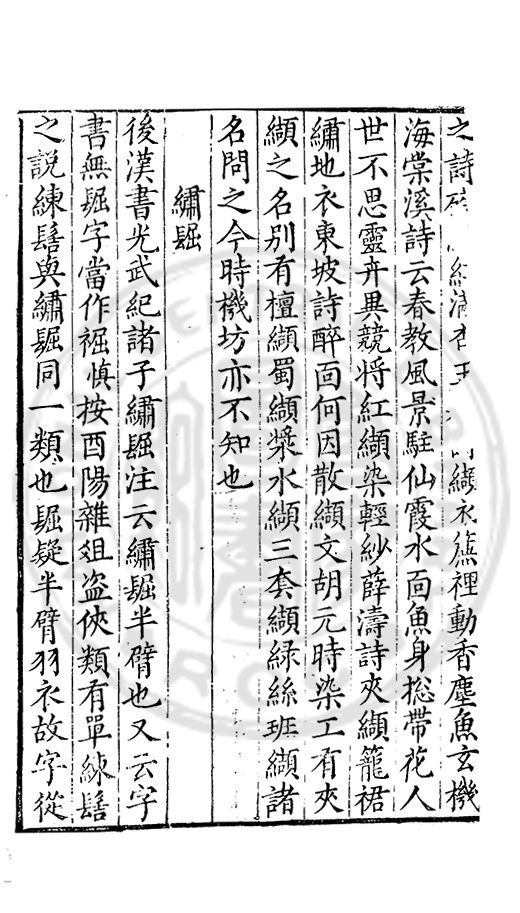 之詩 纈衣簾裡動香塵魚玄機
海棠溪詩云春教風景駐仙霞水面魚身総帶花人
世不思靈卉異競將紅纈染輕紗薛濤詩夾纈籠裙
繡地衣東坡詩醉面何因散纈文胡元時染工有夾
纈之名別有檀纈蜀纈漿水纈三套纈綠絲班纈諸
名問之今時機坊亦不知也
繡䘿
後漢書光武紀諸于繡䘿注云繡䘿半臂也又云字
書無䘿字當作裾慎按酉陽雜俎盗俠類有單練髻
之說練髻與繡䘿同一類也䘿疑半臂羽衣故字從